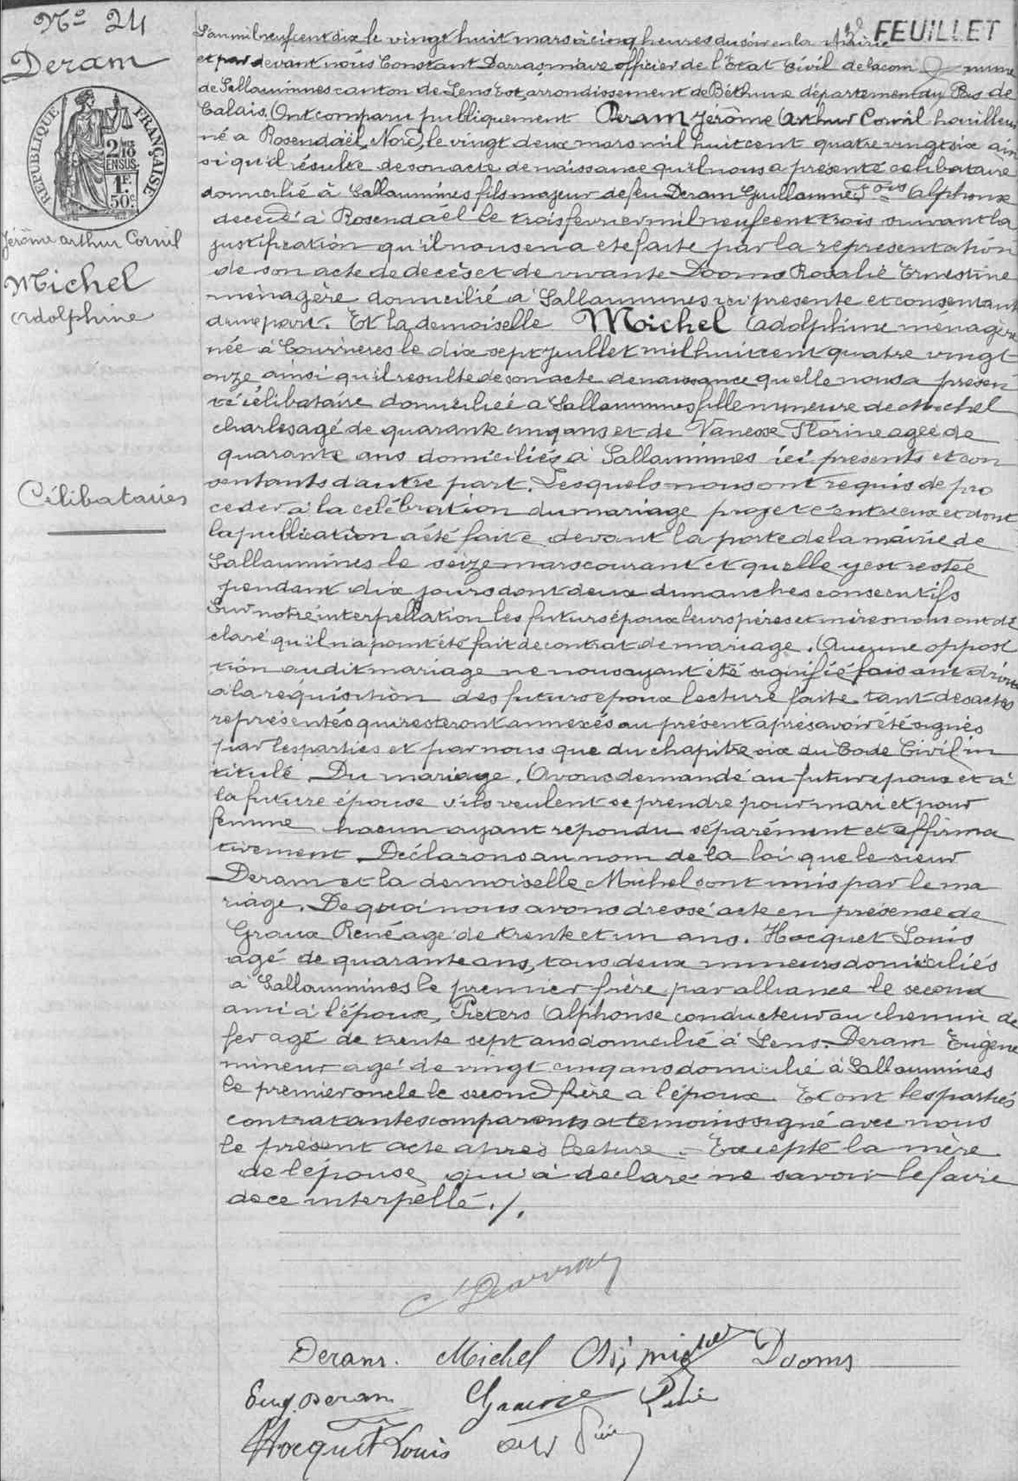 N° 24
Deram
RÉPUBLIQUE FRANÇAISE
2/10 EN SUS
1F 50c
Jérôme Arthur Cornil
Michel
Adolphine
Célibataires
FEUILLET
L'an mil neuf cent dix le vingt huit mars à cinq heures du soir en la Mairie
et par devant nous Constant Darras maire officier de l'Etat Civil de la com mune
de Sallaumines canton de Lens Est, arrondissement de Béthune département du Pas de
Calais. Ont comparu publiquement Deram Jérôme Arthur Cornil houilleur
né à Rosendaël, Nord, le vingt deux mars mil huit cent quatre vingt six ain
si qu'il résulte de son acte de naissance qu'il nous a présenté célibataire
domicilié à Sallaumines fils majeur de feu Deram Guillaume Alphonse
décédé à Rosendaël le trois fevrier mil neuf cent trois suivant la
justification qu'il nous en a été faite par la représentation
de son acte de decès et de vivante Dooms Rosalie Ernestine
ménagère domicilié à Sallaumines ici présente et consentant
d'une part. Et la demoiselle Michel Adolphine ménagère
née à Courrieres le dix sept juillet mil huit cent quatre vingt
onze ainsi qu'il resulte de son acte de naissance quelle nous a présen
té célibataire domiciliée à Sallaumines fille mineure de Michel
Charles agé de quarante cinq ans et de Vanesse Florine agée de
quarante ans domiciliés à Sallaumines ici présents et con
sentants d'autre part. Lesquels nous ont requis de pro
ceder à la célébration du mariage projeté entre eux et dont
la publication a été faite devant la porte de la mairie de
Sallaumines le seize mars courant et quelle y est restée
pendant dix jours dont deux dimanches consecutifs
Sur notre interpellation les futurs époux leurs pères et mères nous ont dé
claré qu'il n'a point été fait de contrat de mariage. Aucune opposi
tion audit mariage ne nous ayant été signifié faisant droit
à la réquisition des futurs époux lecture faite tant des actes
représentés qui resteront annexés au présent après avoir été signés
par les parties et par nous que du chapitre six du Code Civil in
titulé Du mariage. Avons demandé au futur epoux et à
la future épouse s'ils veulent se prendre pour mari et pour
femme hacun ayant répondu séparément et affirma
tivement Déclarons au nom de la loi que le sieur
Deram et la demoiselle Michel sont unis par le ma
riage. De quoi nous avons dressé acte en présence de
Graux René age de trente et un ans. Hocquet Louis
agé de quarante ans, tous deux mineurs domiciliés
à Sallaumines le premier frère par alliance le second
ami à l'époux, Pieters Alphonse conducteur au chemin de
fer agé de trente sept ans domicilié à Lens. Deram Eugène
mineur agé de vingt cinq ans domicilié à Sallaumines
le premier oncle le second frère a l'époux Et ont les parties
contractantes comparents et temoins signé avec nous
le présent acte après lecture. Excepté la mère
de l'épouse qui a déclaré ne savoir le faire
de ce interpellé ./.
Deram. Michel Michel Dooms
Eug. Deram Graux René
Hocquet Louis